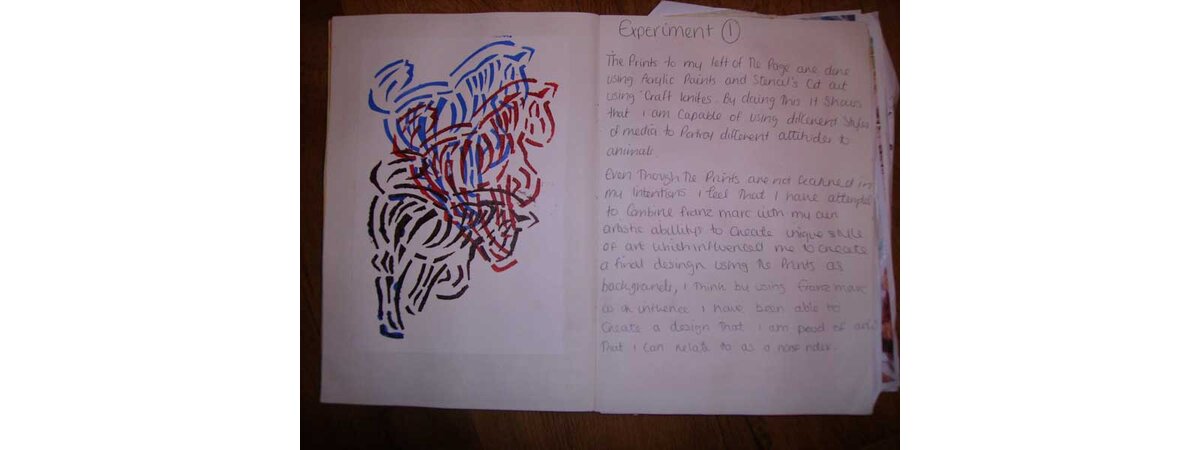 Experiment 1
The Prints to my left of the Page are done
using Acrylic Paints and Stencil's Cut out
using Craft knifes. By doing this it shows
that I am capable of using different styles
of media to Portray different attitudes to
animals.
Even Though The Prints are not featured in
my intentions i feel that I have attempted
to combine franz marc with my own
artistic abillitys to create unique style
of art which influenced me to create
a final design using the Prints as
backgrounds, I think by using franz marc
as an influence I have been able to
create a design that I am proud of and
that I can relate to as a horse rider.